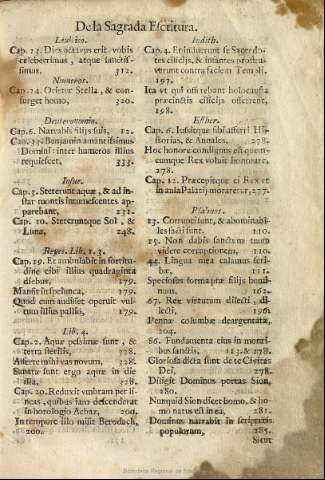 De la Sagrada Escritura.
Levitico.
Cap. 23. Dies octavus erit vobis
celeberrimus, atque sanctis-
simus. 312.
Numeros.
Cap. 24. Orietur Stella, & con-
surget homo, 320.
Deuteronomio.
Cap. 6. Narrabis filijs tuis, 12.
Cap. 33. Benjamin amantissimus
Domini: inter humeros illius
requiescet, 333.
Iosue.
Cap. 3. Steterunt aquæ, & ad in-
star montis intumescentes ap-
parebant, 232.
Cap. 10. Steteruntque Sol, &
Luna, 248.
Reges. Lib. 1. 3.
Cap. 19. Et ambulabit in fortitu-
dine cibi illius quadraginta
diebus, 179.
Mansit in spelunca, 179.
Quod cum audisset operuit vul-
tum illius pallio, 179.
Lib. 4.
Cap. 2. Aquæ pessimæ sunt, &
terra sterilis, 278.
Afferte mihi vas novum, 278.
Sanatæ sunt ergo aquæ in die
illa, 278.
Cap. 20. Reduxit umbram per li-
neas, quibus iam descenderat
in horologio Achaz, 200.
In tempore illo misit Berodach,
200.
Iudith.
Cap. 4. Et induerunt se Sacerdo-
tes cilicijs, & infantes prostra-
verunt contra faciem Templi,
197.
Ita vt qui offerebant holocausta
præcinctis cilicijs offerrent,
198.
Esther.
Cap. 6. Iussitque sibi afferri His-
torias, & Annales, 278.
Hoc honore condignus est quem-
cumque Rex voluit honorare,
278.
Cap. 12. Præcepitque ei Rex vt
in aula Palatij moraretur, 277.
Psalmos.
13. Corrupti sunt, & abominabi-
les facti sunt. 110.
15. Non dabis sanctum tuum
videre corruptionem, 110.
44. Lingua mea calamus scri-
bæ, 111.
Speciosus forma præ filijs homi-
num, 162.
67. Rex virtutum dilecti, di-
lecti, 196.
Pennæ columbæ deargentatæ,
204.
86. Fundamenta eius in monti-
bus sanctis, 113. & 278.
Gloriosa dicta sunt de te Civitas
Dei, 278.
Diligit Dominus portas Sion,
280.
Nunquid Sion dicet homo, & ho-
mo natus est in ea, 281.
Dominus narrabit in scripturis
populorum, 285.
Sicut